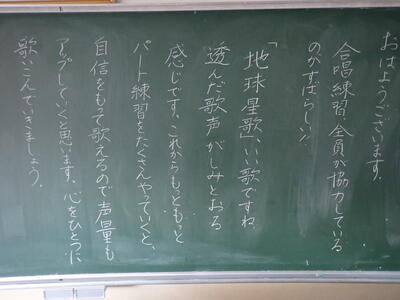 おはようございます。
合唱練習、全員が協力している
のがすばらしい!
「地球星歌」、いい歌ですね
透んだ歌声がしみとおる
感じです。これからもっともっと
パート練習をたくさんやっていくと、
自信をもって歌えるので声量も
アップしていくと思います。心をひとつに
歌いこんでいきましょう。